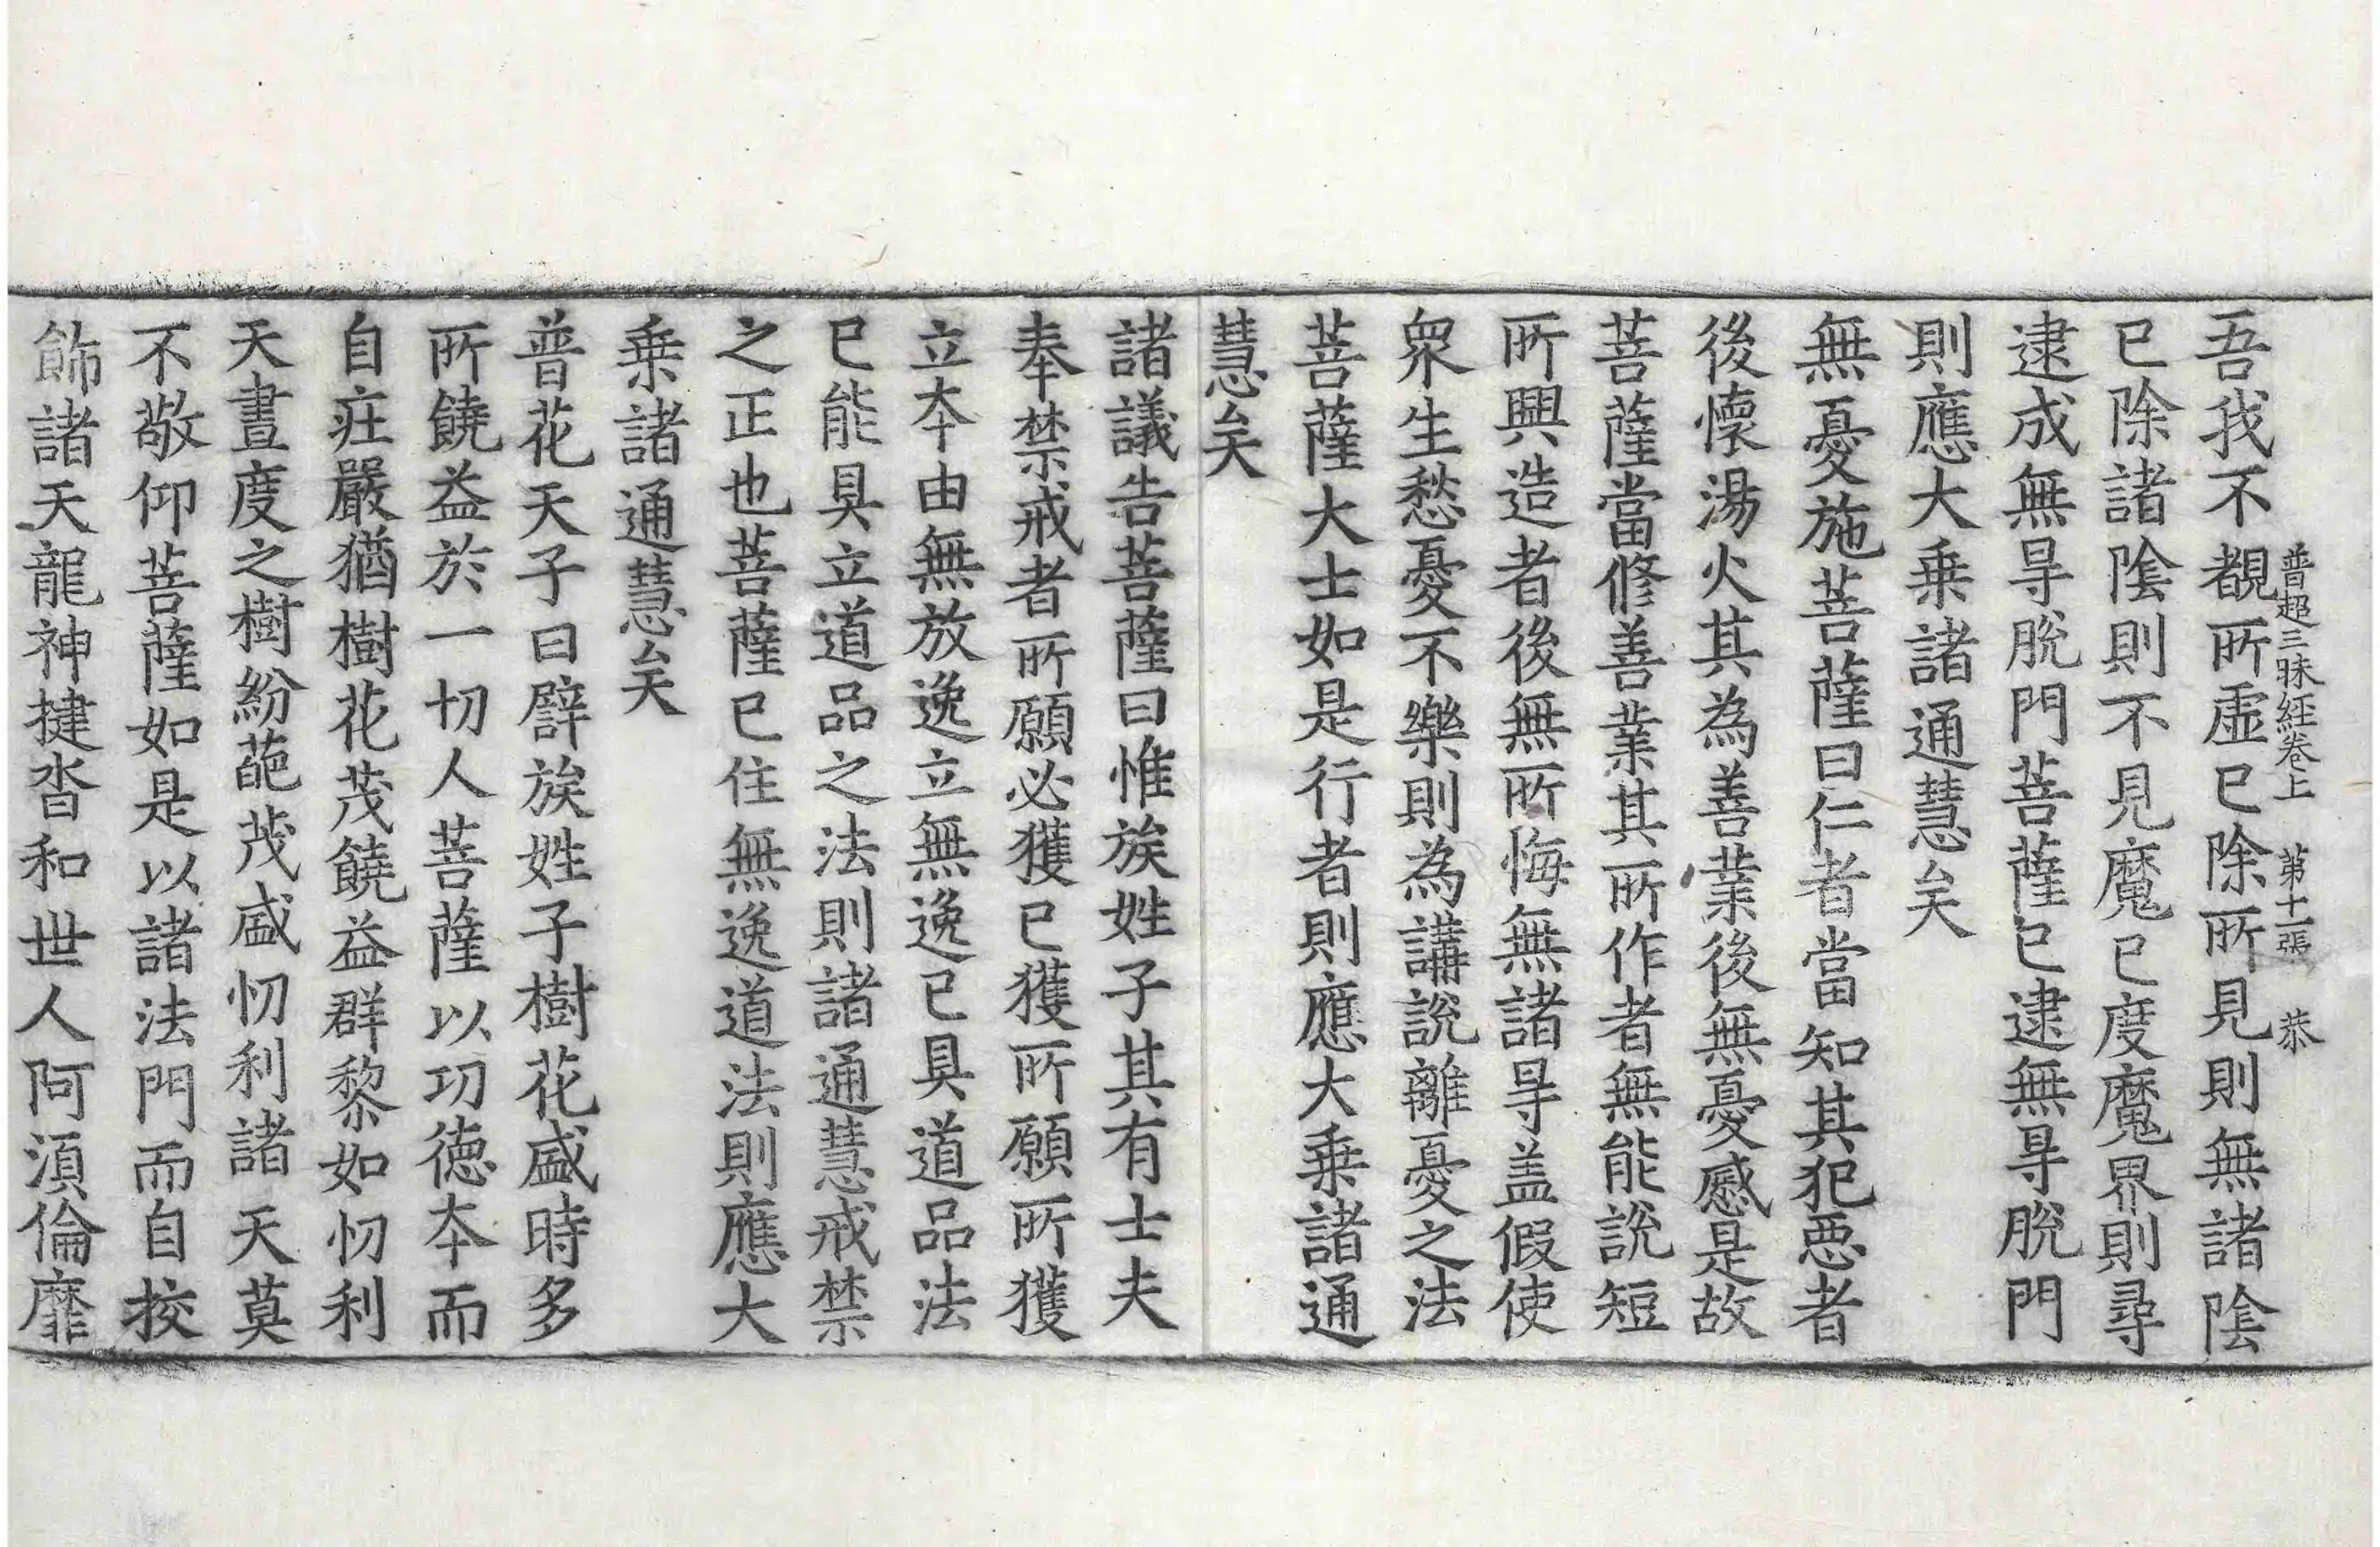 普超三昧經卷上　第十一張　恭
吾我不覩所虛已除所見則無諸陰
已除諸陰則不見魔已度魔界則尋
逮成無㝵脫門菩薩已逮無㝵脫門
則應大乗諸通慧矣
無憂施菩薩曰仁者當知其犯惡者
後懷湯火其為善業後無憂慼是故
菩薩當修善業其所作者無能說短
所興造者後無所悔無諸㝵盖假使
衆生愁憂不樂則為講說離憂之法
菩薩大士如是行者則應大乗諸通
慧矣
諸議告菩薩曰惟族姓子其有士夫
奉禁戒者所願必獲已獲所願所獲
立夲由無放逸立無逸已具道品法
已能具立道品之法則諸通慧戒禁
之正也菩薩已住無逸道法則應大
乗諸通慧矣
普花天子曰譬族姓子樹花盛時多
所饒益於一切人菩薩以功徳夲而
自莊嚴猶樹花茂饒益群黎如忉利
天晝度之樹紛葩茂盛忉利諸天莫
不敬仰菩薩如是以諸法門而自挍
飾諸天龍神揵沓和世人阿湏倫靡